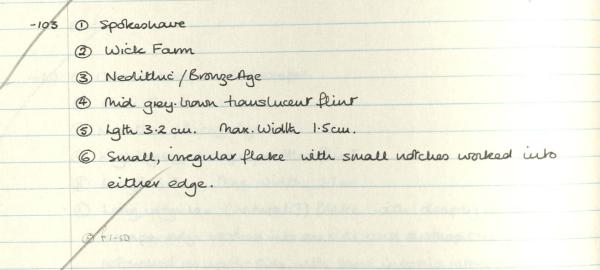 -103 ① Spokeshave
② Wick Farm
③ Neolithic/Bronze Age
④ Mid grey-brown translucent flint
⑤ Lgth 3.2 cm. Max. Width 1.5cm.
⑥ Small, irregular flake with small notches worked into
either edge.